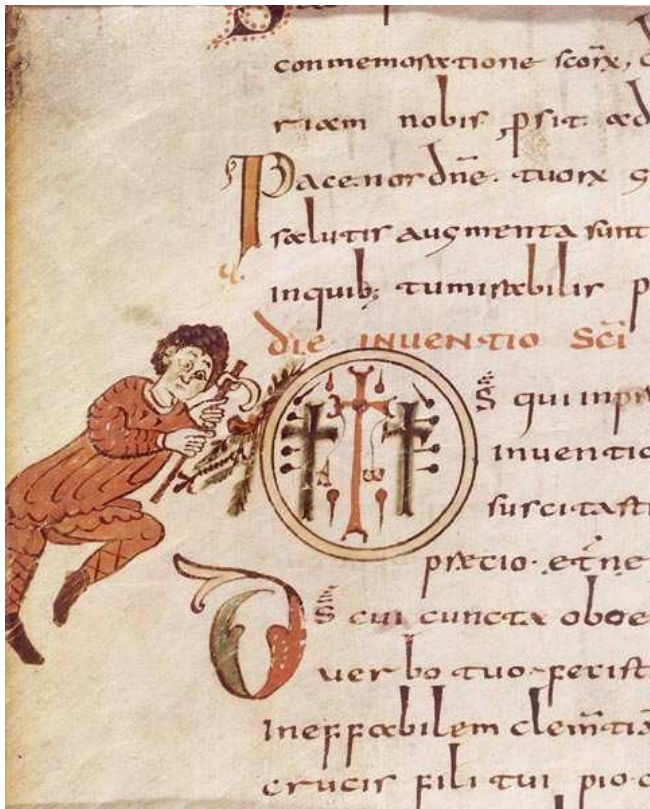 conmemoratione scōꝝ, c
riam nobis ꝓsit. ad
Pacenos dn̄e. tuoꝝ s
salutis augmenta sunt
inquib; tumirabilis p
die INUENTIO SC̄I
Ds̄ qui inpr
inuentio
suscitasti
precio. et̄ne
Ds̄ cui cuncta oboe
uerbo tuo. perfi
ineffabilem clem̄tiā
crucis fili tui pio c